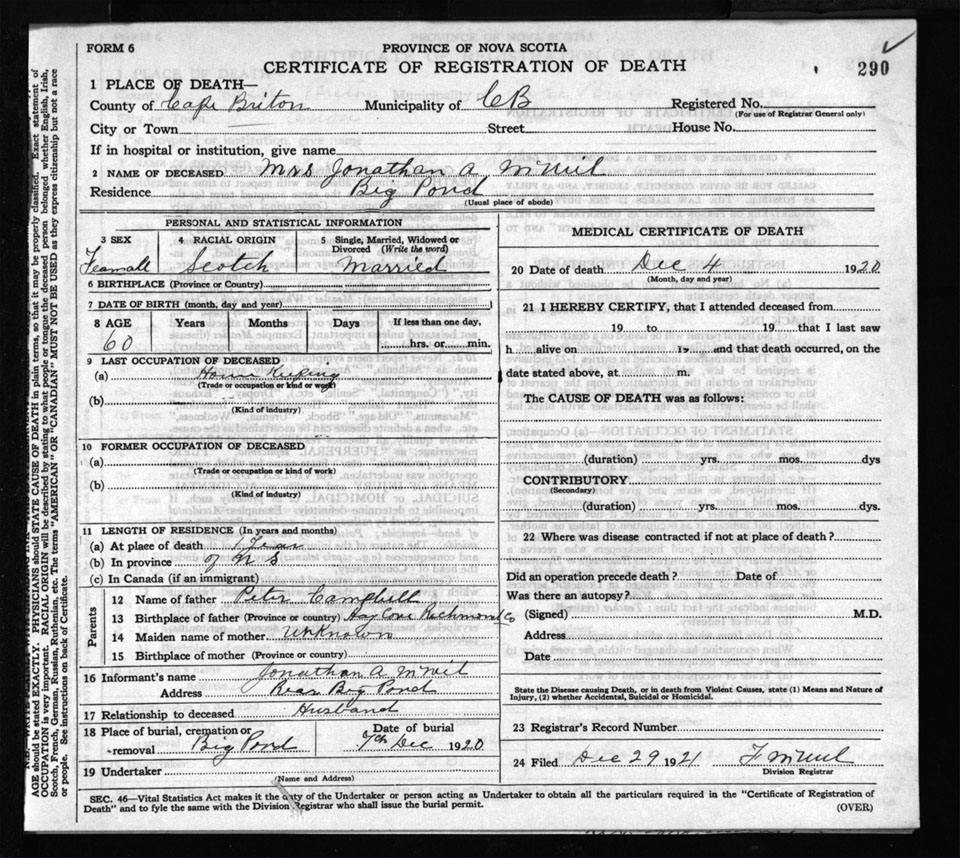 FORM 6
PROVINCE OF NOVA SCOTIA
CERTIFICATE OF REGISTRATION OF DEATH
290
1 PLACE OF DEATH—
County of Cape Briton Municipality of CB Registered No.
(For use of Registrar General only)
City or Town Street House No.
If in hospital or institution, give name
2 NAME OF DECEASED Mrs Jonathan A McNeil
Residence Big Pond
(Usual place of abode)
PERSONAL AND STATISTICAL INFORMATION
3 SEX 4 RACIAL ORIGIN 5 Single, Married, Widowed or Divorced (Write the word)
Feamall Scotch Married
6 BIRTHPLACE (Province or Country)
7 DATE OF BIRTH (month, day and year)
8 AGE Years Months Days If less than one day,
60 hrs. or min.
9 LAST OCCUPATION OF DECEASED
(a) House Keeping
(Trade or occupation or kind of work)
(b)
(Kind of industry)
10 FORMER OCCUPATION OF DECEASED
(a)
(Trade or occupation or kind of work)
(b)
(Kind of industry)
11 LENGTH OF RESIDENCE (In years and months)
(a) At place of death 1 Year
(b) In province of N S
(c) In Canada (if an immigrant)
Parents
12 Name of father Peter Campbell
13 Birthplace of father (Province or country) Hay Cove Richmond Co
14 Maiden name of mother Unknown
15 Birthplace of mother (Province or country)
16 Informant's name Jonathan A McNeil
Address Rear Big Pond
17 Relationship to deceased Husband
18 Place of burial, cremation or removal Big Pond
Date of burial 7th Dec 1920
19 Undertaker
(Name and Address)
MEDICAL CERTIFICATE OF DEATH
20 Date of death Dec 4 1920
(Month, day and year)
21 I HEREBY CERTIFY, that I attended deceased from
19 to 19 that I last saw
h alive on 19 and that death occurred, on the
date stated above, at m.
The CAUSE OF DEATH was as follows:
(duration) yrs. mos. dys
CONTRIBUTORY
(Secondary)
(duration) yrs. mos. dys.
22 Where was disease contracted if not at place of death?
Did an operation precede death? Date of
Was there an autopsy?
(Signed) M.D.
Address
Date
State the Disease causing Death, or in death from Violent Causes, state (1) Means and Nature of
Injury, (2) whether Accidental, Suicidal or Homicidal.
23 Registrar's Record Number
24 Filed Dec 29 1921 F McNeil
Division Registrar
SEC. 46—Vital Statistics Act makes it the duty of the Undertaker or person acting as Undertaker to obtain all the particulars required in the "Certificate of Registration of
Death" and to fyle the same with the Division Registrar who shall issue the burial permit. (OVER)
AGE should be stated EXACTLY. PHYSICIANS should STATE CAUSE OF DEATH in plain terms, so that it may be properly classified. Exact statement of
OCCUPATION is very important. RACIAL ORIGIN will be described by stating to what people or tongue the deceased person belonged, whether English, Irish,
Scotch, French, German, Russian, Ruthenian, etc. The terms "AMERICAN" OR "CANADIAN" MUST NOT BE USED as they express citizenship but not a race
or people. See instructions on back of Certificate.